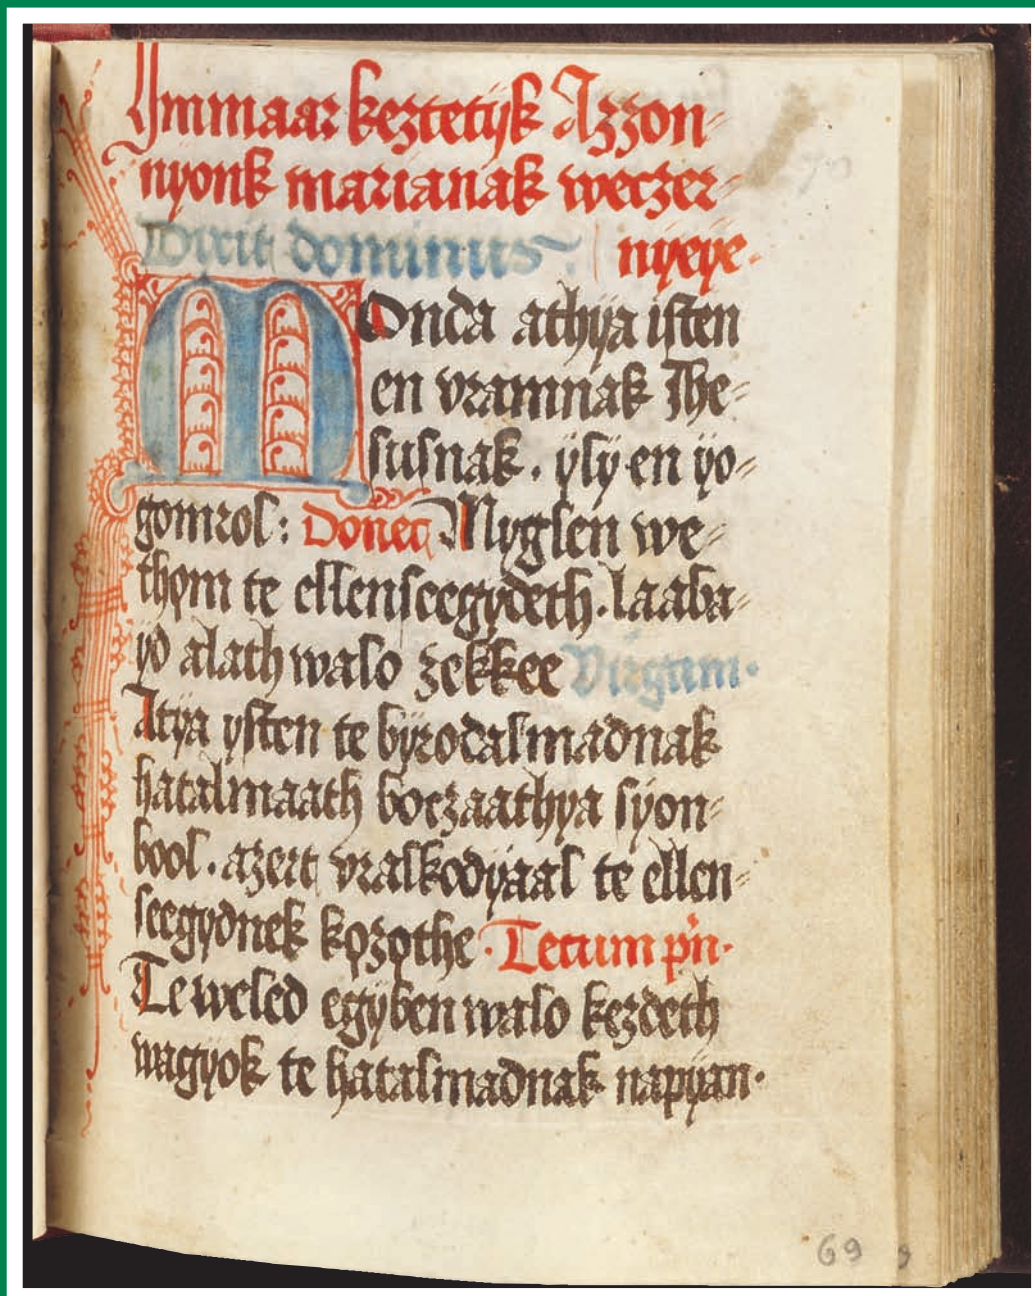 Ymmaar keztetijk Azzon⸗
nyonk marianak weczer⸗
Dixit dominus nyeye.
MOnda athija isten
en vramnak Jhe⸗
susnak. ÿlÿ en ÿo⸗
gomrol: Donec Mygлen we⸗
thom te ellenseegydeth. laaba⸗
yd alath walo zekkee Virgam.
Atÿa ysten te byrodalmadnak
hatalmaath boczaathya sÿon⸗
bool. azert vralkodÿaal te ellen⸗
seegydnek kozothe. Tecum pn̄.
Te weled egÿben walo kezdeth
wagyok te hatalmadnak napÿan.
69